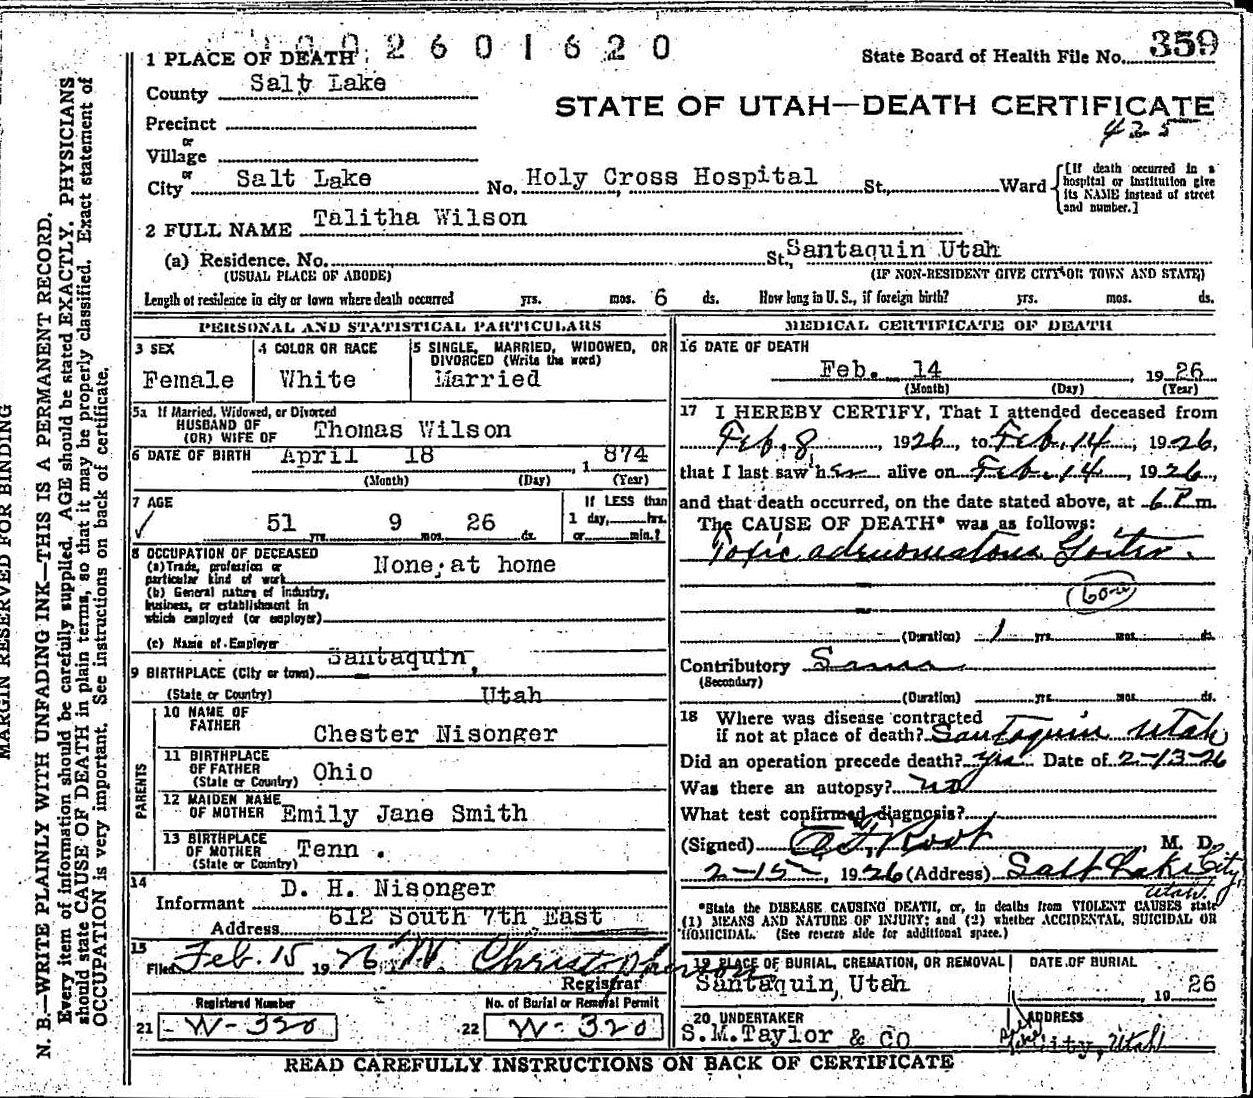 2 6 0 1 6 2 0
1 PLACE OF DEATH
State Board of Health File No. 359
County Salt Lake
STATE OF UTAH—DEATH CERTIFICATE
Precinct
425
or
Village
or
City Salt Lake No. Holy Cross Hospital St., Ward
[If death occurred in a hospital or institution give its NAME instead of street and number.]
2 FULL NAME Talitha Wilson
(a) Residence. No. St., Santaquin Utah
(USUAL PLACE OF ABODE) (IF NON-RESIDENT GIVE CITY OR TOWN AND STATE)
Length of residence in city or town where death occurred yrs. mos. 6 ds. How long in U. S., if foreign birth? yrs. mos. ds.
PERSONAL AND STATISTICAL PARTICULARS
3 SEX
Female
4 COLOR OR RACE
White
5 SINGLE, MARRIED, WIDOWED, OR DIVORCED (Write the word)
Married
5a If Married, Widowed, or Divorced
HUSBAND OF
(OR) WIFE OF Thomas Wilson
6 DATE OF BIRTH April 18, 1874
(Month) (Day) (Year)
7 AGE
51 yrs. 9 mos. 26 ds.
If LESS than
1 day, hrs.
or min.?
8 OCCUPATION OF DECEASED
(a) Trade, profession or
particular kind of work None; at home
(b) General nature of industry,
business, or establishment in
which employed (or employer)
(c) Name of Employer
9 BIRTHPLACE (City or town) Santaquin,
(State or Country) Utah
PARENTS
10 NAME OF
FATHER Chester Nisonger
11 BIRTHPLACE
OF FATHER
(State or Country) Ohio
12 MAIDEN NAME
OF MOTHER Emily Jane Smith
13 BIRTHPLACE
OF MOTHER
(State or Country) Tenn.
14
Informant D. H. Nisonger
Address 612 South 7th East
15
Filed Feb. 15 1926 W. Christopherson
Registrar
Registered Number
21 W-320
No. of Burial or Removal Permit
22 W-320
MEDICAL CERTIFICATE OF DEATH
16 DATE OF DEATH
Feb. 14 1926
(Month) (Day) (Year)
17 I HEREBY CERTIFY, That I attended deceased from
Feb. 8, 1926, to Feb. 14, 1926,
that I last saw her alive on Feb. 14, 1926,
and that death occurred, on the date stated above, at 6 P. m.
The CAUSE OF DEATH* was as follows:
Toxic adenomatous Goiter.
(Duration) 1 yrs. mos. ds.
Contributory Same
(Secondary)
(Duration) yrs. mos. ds.
18 Where was disease contracted
if not at place of death? Santaquin Utah
Did an operation precede death? yes Date of 2-13-26
Was there an autopsy? no
What test confirmed diagnosis?
(Signed) Root, M. D.
2-15-, 1926 (Address) Salt Lake City,
Utah
*State the DISEASE CAUSING DEATH, or, in deaths from VIOLENT CAUSES state
(1) MEANS AND NATURE OF INJURY; and (2) whether ACCIDENTAL, SUICIDAL OR
HOMICIDAL. (See reverse side for additional space.)
19 PLACE OF BURIAL, CREMATION, OR REMOVAL
Santaquin, Utah
DATE OF BURIAL
, 1926
20 UNDERTAKER
S.M.Taylor & CO
ADDRESS
City, Utah
READ CAREFULLY INSTRUCTIONS ON BACK OF CERTIFICATE
MARGIN RESERVED FOR BINDING
N. B.—WRITE PLAINLY WITH UNFADING INK—THIS IS A PERMANENT RECORD.
Every item of information should be carefully supplied. AGE should be stated EXACTLY. PHYSICIANS
should state CAUSE OF DEATH in plain terms, so that it may be properly classified. Exact statement of
OCCUPATION is very important. See instructions on back of certificate.